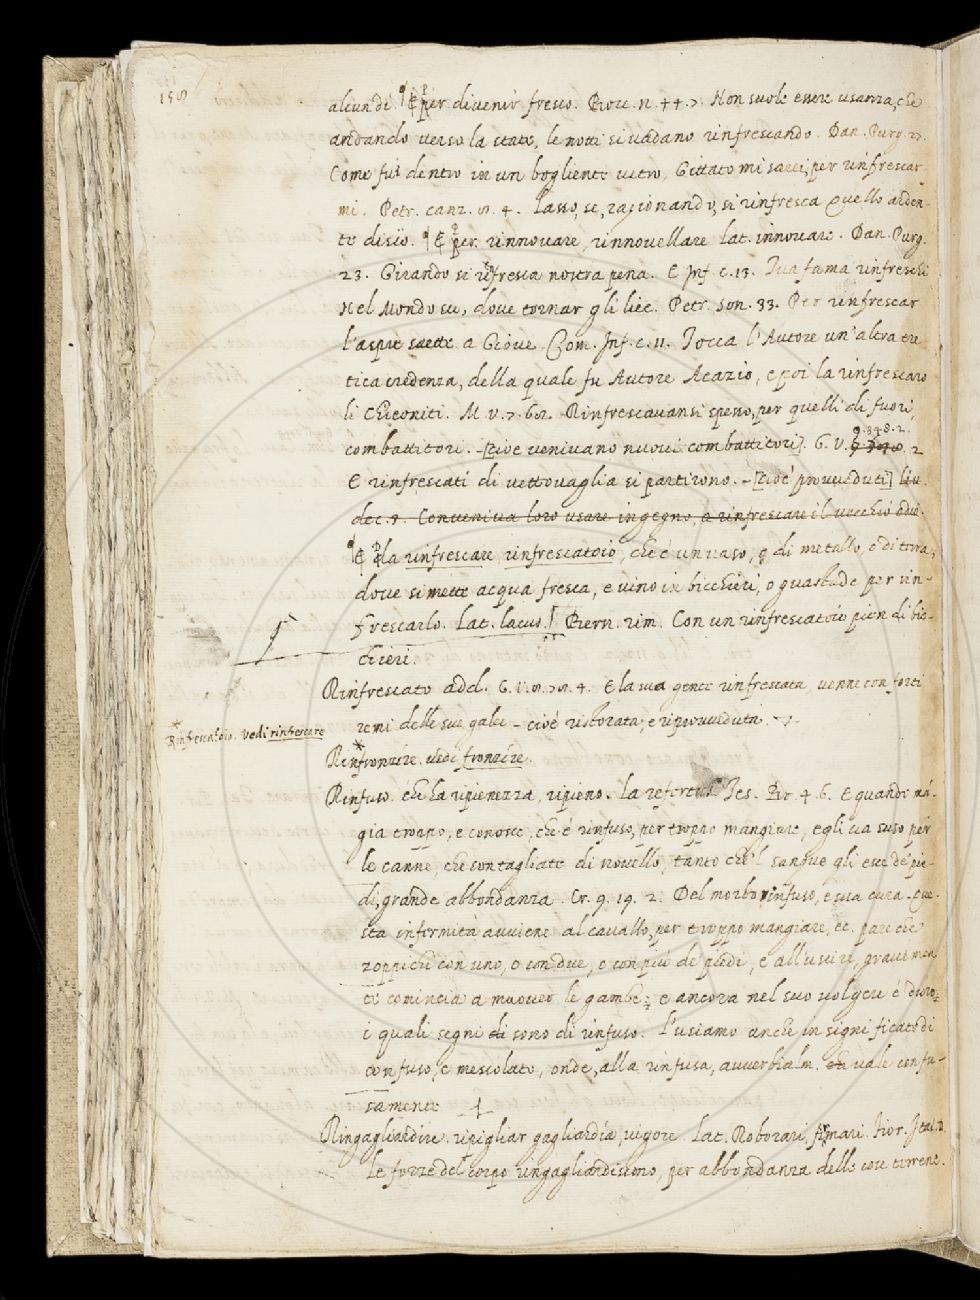 158
alcun dì. E per divenir fresco. Bocc. n. 44. 7. Non suole essere usanza, che
andando verso la state, le notti si vadano rinfrescando. Dan. Purg. 27.
Come fui dentro in un bogliente vetro, Gittato mi sarei, per rinfrescar-
mi. Petr. canz. 4. Lasso, se, ragionando, si rinfresca Quello arden-
te disio. E per rinnovare, rinnovellare Lat. innovare. Dan. Purg.
23. Girando si rinfresca nostra pena. E Inf. c. 13. Tua fama rinfreschi
Nel Mondo su, dove tornar gli lice. Petr. son. 33. Per rinfrescar
l'aspre saette a Giove. Com. Inf. c. 11. Tocca l'Autore un'altra ere
tica credenza, della quale fu Autore Acazio, e poi la rinfrescaro
li M. V. 7. Rinfrescavansi spesso, per quelli di fuori,
9. 348. 2.
combattitori. - [cioè venivano nuovi combattitori]. G. V. 2
E rinfrescati di vettovaglia si partirono. - [cioè provveduti] Liv.
dec. Conveniva loro usare ingegno, a rinfrescare il vecchio odio.
E da rinfrescare, rinfrescatoio, che è un vaso, o di metallo, o di terra,
dove si mette acqua fresca, e vino in bicchieri, o guastade per rin-
frescarlo. Lat. lacus. Bern. rim. Con un rinfrescatoio pien di bic-
chieri.
Rinfrescato add. G. V. 4. E la sua gente rinfrescata, venne con forti
remi delle sue galee - cioè ristorata, e riprovveduta.
Rinfrescatoio. vedi rinfrescare
Rinfronzire. vedi fronzire.
Rinfuso. che ha ripienezza, ripieno. Lat. refertus. Tes. Br. 4. 6. E quando man-
gia troppo, e conosce, che è rinfuso, per troppo mangiare, egli va suso per
le canne, che son tagliate di novello, tanto che'l sangue gli esce de' pie-
di, grande abbondanza. Cr. 9. 19. 2. Del morbo rinfuso, e sua cura. Que-
sta infermità avviene al cavallo, per troppo mangiare, ec. pare che
zoppichi con uno, o con due, o con più de' piedi, e all'uscire, gravemen
te comincia a muover le gambe: e ancora nel suo volgere è
i quali segni sono di rinfuso. L'usiamo anche in significato di
confuso, e mescolato, onde, alla rinfusa, avverbialm. che vale confu-
samente
Ringagliardire. ripigliar gagliardia, vigore. Lat. Roborari, firmari. Fior. Ital. D.
Le forze del corpo ringagliardiscono, per abbondanza delle cose terrene.